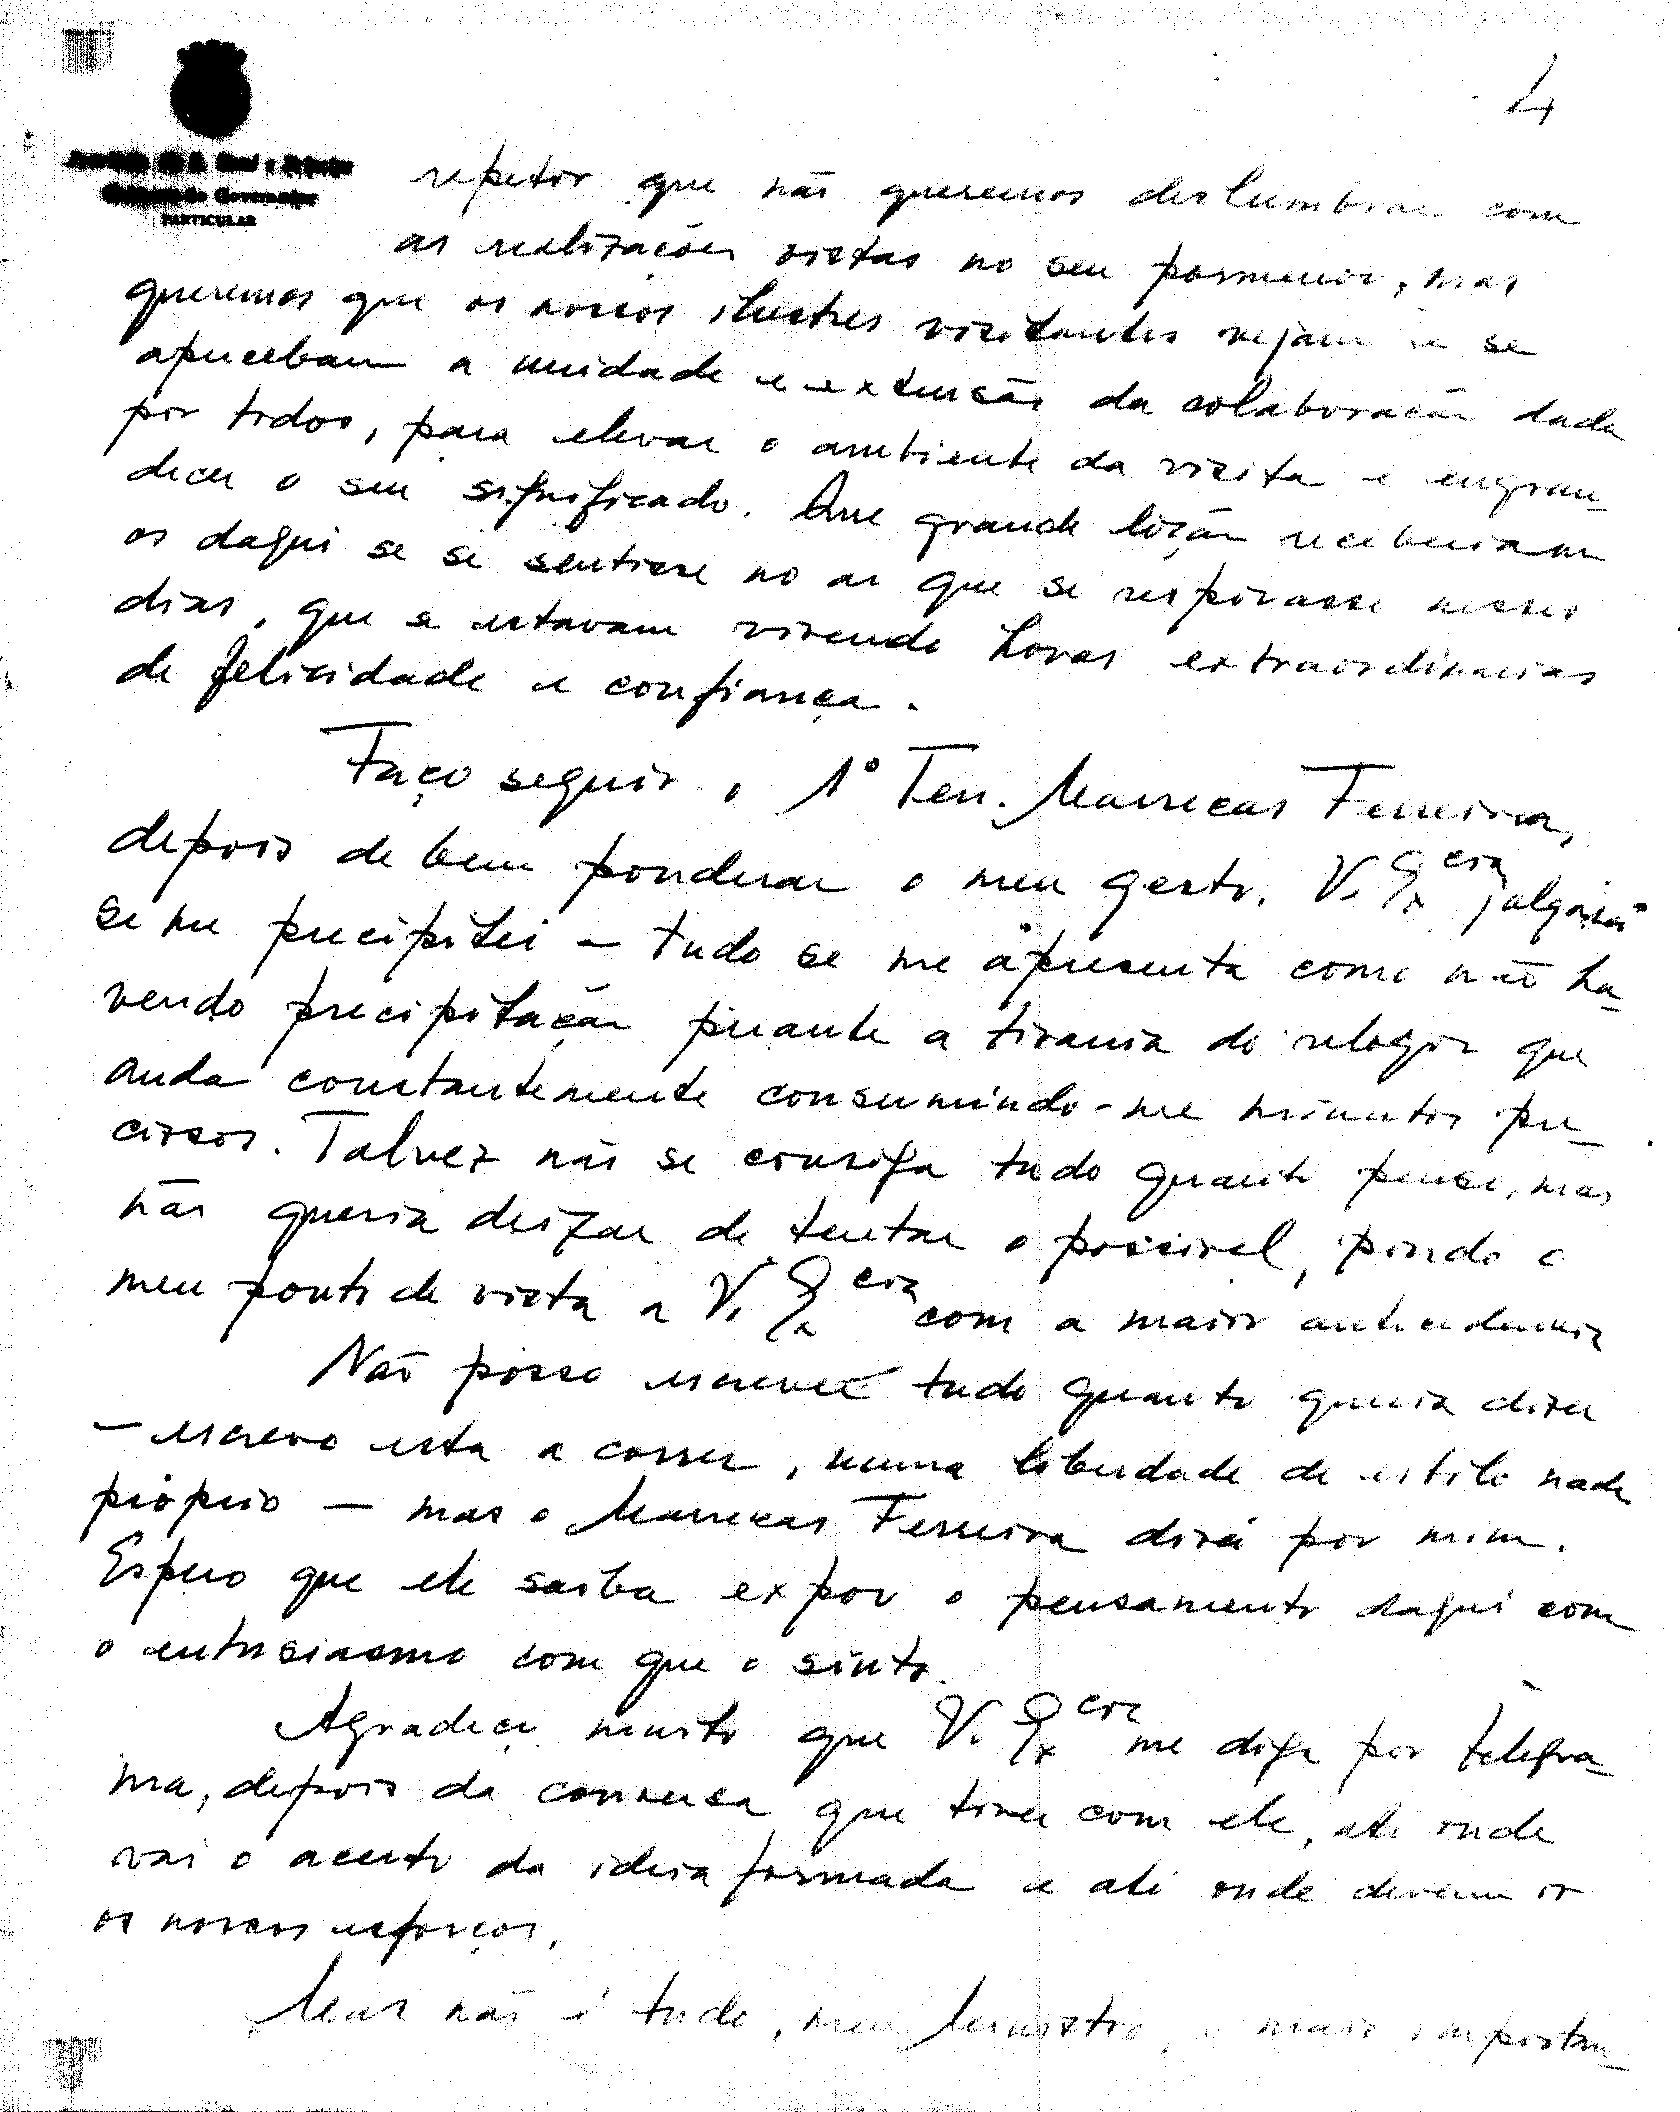 4
Província de S. Tomé e Príncipe
Gabinete do Governador
PARTICULAR
repetir que não queremos deslumbrar com
as realizações vistas no seu pormenor, mas
queremos que os nossos ilustres visitantes vejam e se
apercebam a unidade e extensão da colaboração dada
por todos, para elevar o ambiente da visita e engran-
decer o seu significado. Que grande lição receberiam
os daqui se se sentisse no ar que se respirasse nesses
dias, que se estavam vivendo horas extraordinárias
de felicidade e confiança.
Faço seguir o 1º Ten. Marrecas Ferreira,
depois de bem ponderar o meu gesto. V. Ex.cia julgará
se me precipitei – tudo se me apresenta como não ha-
vendo precipitação perante a tirania do relógio que
anda constantemente consumindo-me minutos pre-
ciosos. Talvez não se consiga tudo quanto penso, mas
não queria deixar de tentar o possível, pondo o
meu ponto de vista a V. Ex.cia com a maior antecedencia
Não posso escrever tudo quanto queria dizer
– escrevo esta a correr, numa liberdade de estilo nada
próprio – mas o Marrecas Ferreira dirá por mim.
Espero que ele saiba expor o pensamento daqui com
o entusiasmo com que o sinto.
Agradeço muito que V. Ex.cia me diga por telegra-
ma, depois da conversa que tiver com ele, até onde
vai o acerto da ideia formada e até onde devem ir
os nossos esforços.
Mas não é tudo, meu Ministro, o mais importan-